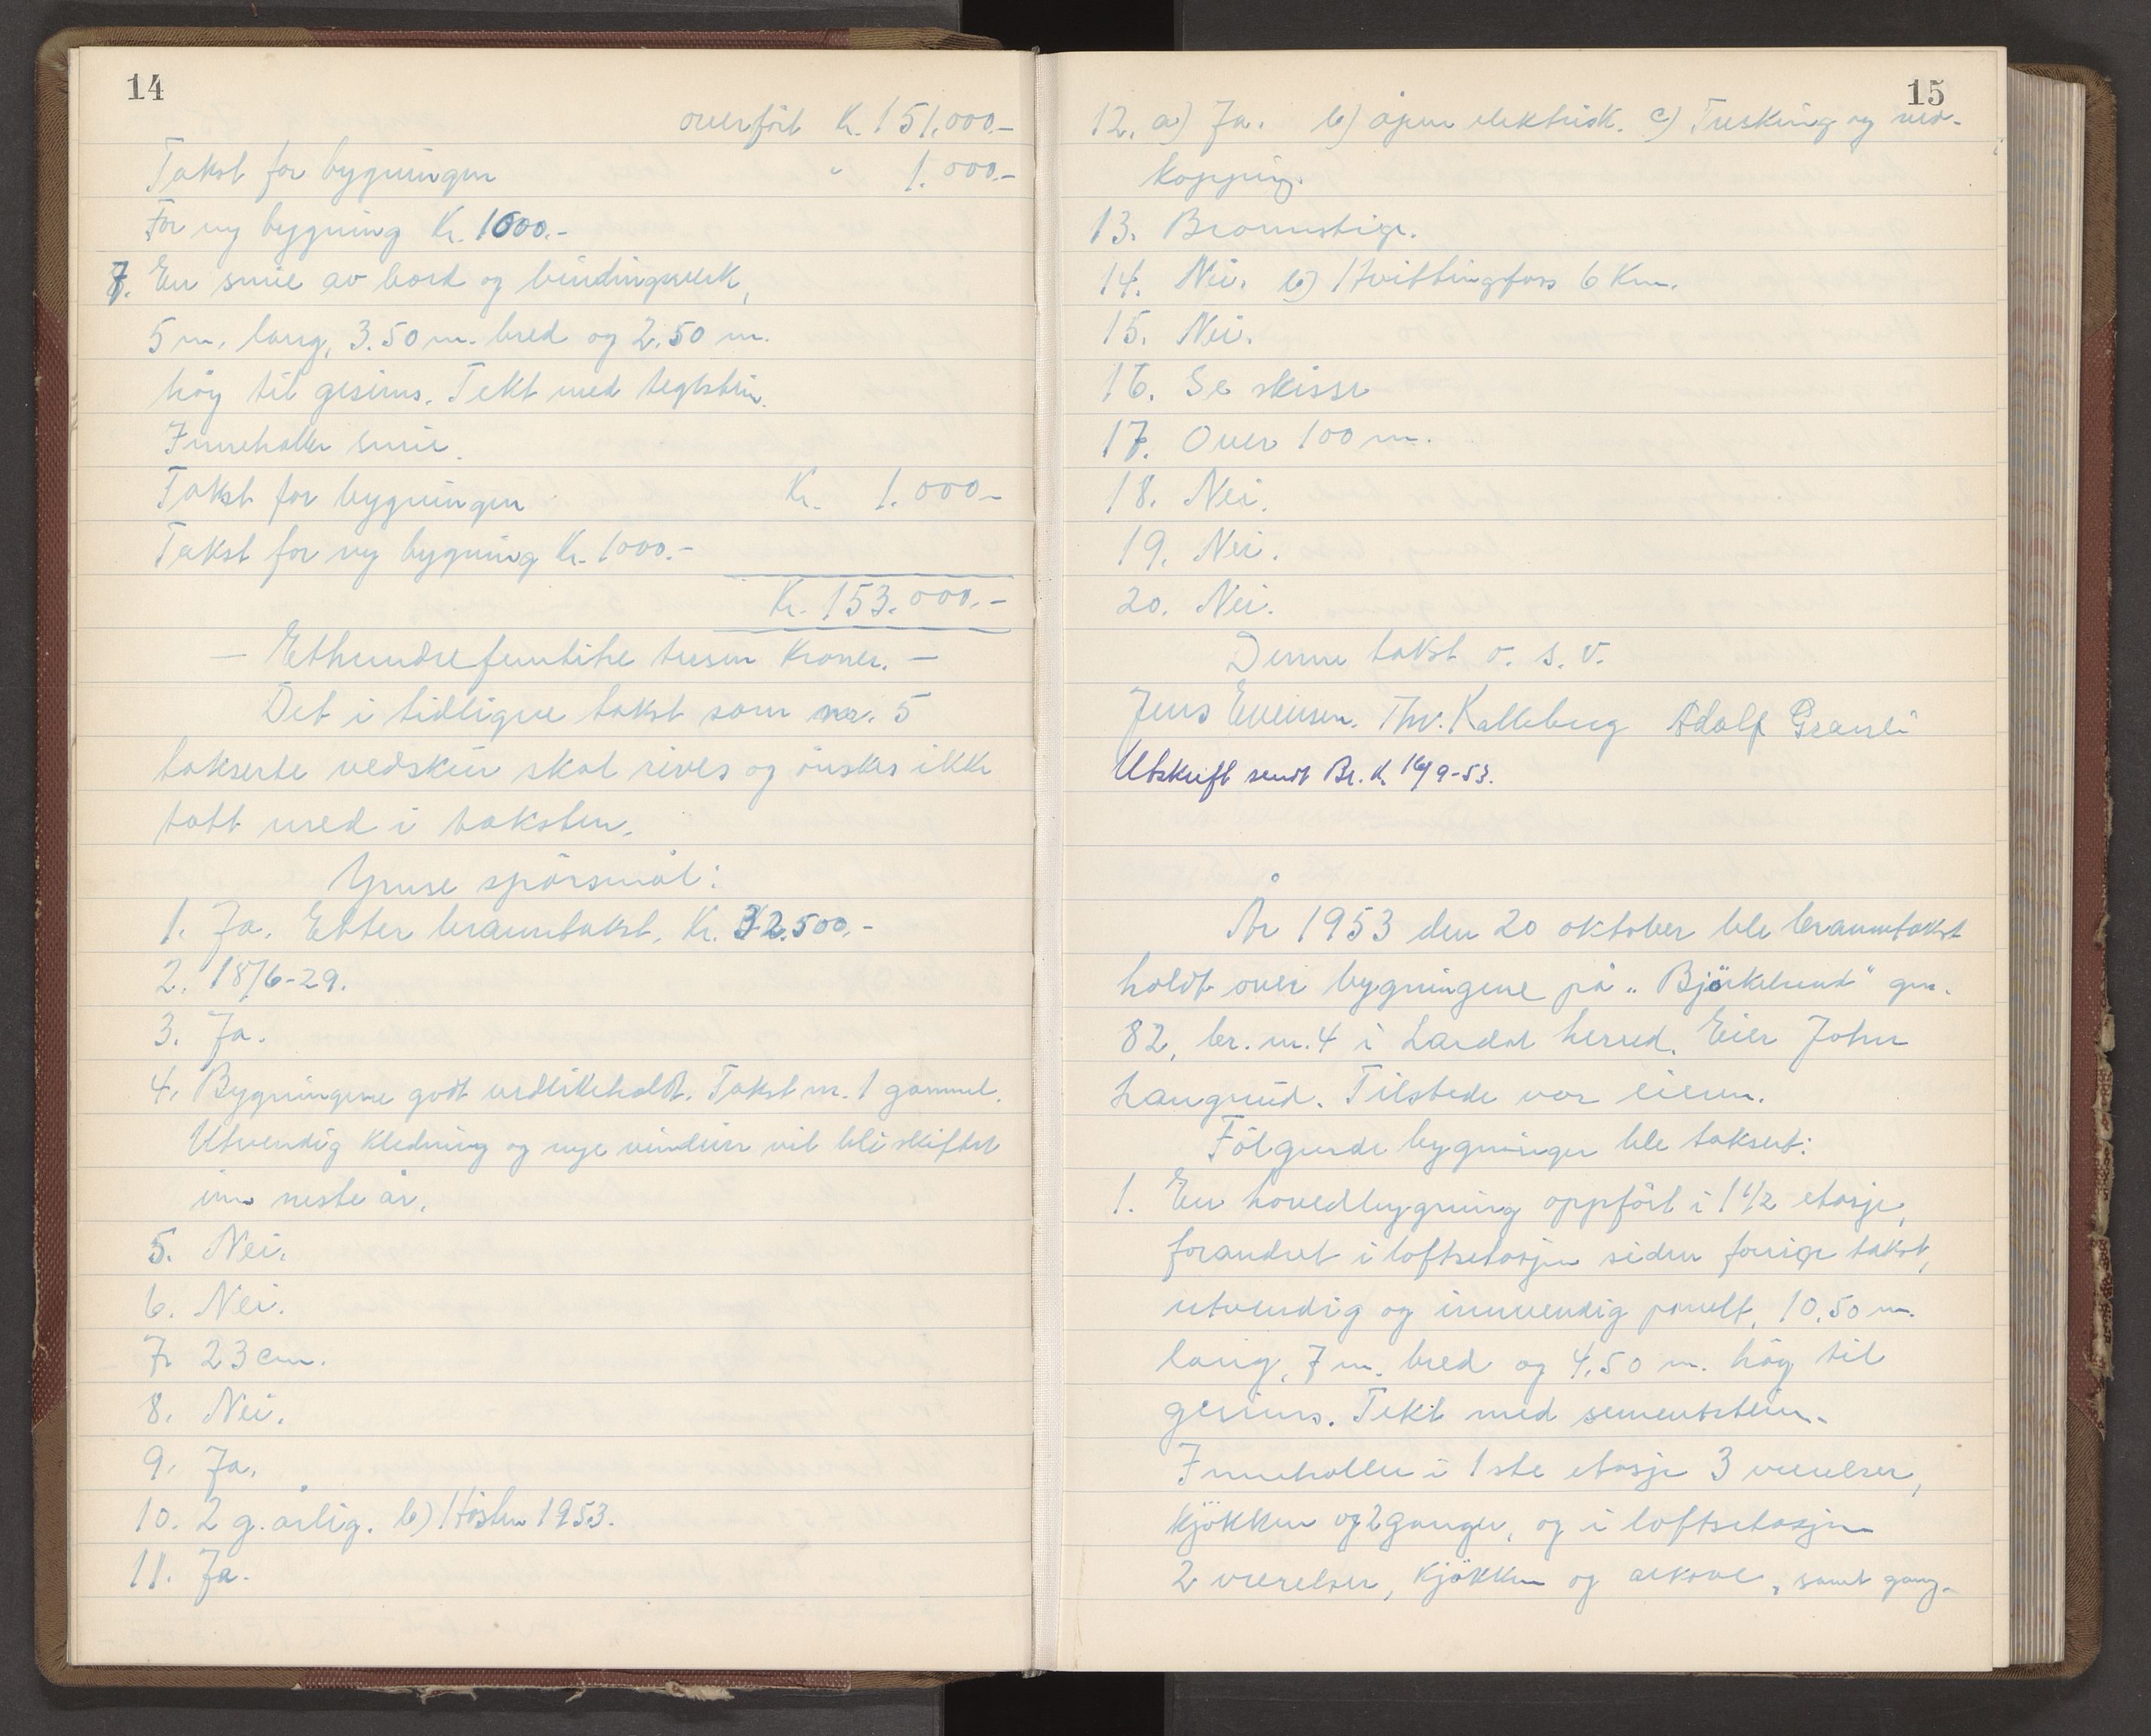 14
overfört Kr. 151.000.-
Takst for bygningen " 1.000.-
For ny bygning Kr. 1000.-
7. En smie av bord og bindingsverk,
5 m. lang, 3.50 m. bred og 2.50 m.
höy til gesims. Tekt med teglstein.
Inneholder smie.
Takst for bygningen Kr. 1.000-
Takst for ny bygning Kr. 1000.-
Kr. 153.000.-
- Ethundrefemtitre tusen kroner. -
Det i tidligere takst som nr. 5
takserte vedskur skal rives og önskes ikke
tatt med i taksten.
Ymse spörsmål:
1. Ja. Etter branntakst. Kr. 32.500.-
2. 18/6-29.
3. Ja.
4. Bygningene godt vedlikeholdt. Takst nr. 1 gammel.
Utvendig kledning og nye vinduer vil bli skiftet
inn neste år.
5. Nei.
6. Nei.
7. 23 cm.
8. Nei.
9. Ja.
10. 2 g. årlig. b) Hösten 1953.
11. Ja.
15
12. a) Ja. b) åpen elektrisk. c) Tresking og ved-
kapping.
13. Brannstige.
14. Nei. b) Hvittingfoss 6 Km.
15. Nei.
16. Se skisse
17. Over 100 m.
18. Nei.
19. Nei.
20. Nei.
Denne takst o. s. v.
Jens Evensen. Thv. Kalleberg Adolf Granli
Utskrift sendt Br. K. 16/9-53.
År 1953 den 20 oktober ble branntakst
holdt over bygningene på "Björkelund" gnr.
82, br. nr. 4 i Lardal herred. Eier John
Langrud. Tilstede var eieren.
Fölgende bygninger ble taksert:
1. En hovedbygning oppfört i 1 1/2 etasje,
forandret i loftsetasjen siden forrige takst,
utvendig og innvendig panelt, 10.50 m.
lang, 7 m. bred og 4.50 m. höy til
gesims. Tekt med sementstein.
Inneholder i 1ste etasje 3 værelser,
kjökken og 2 ganger, og i loftsetasjen
2 værelser, kjökken og alkove, samt gang.